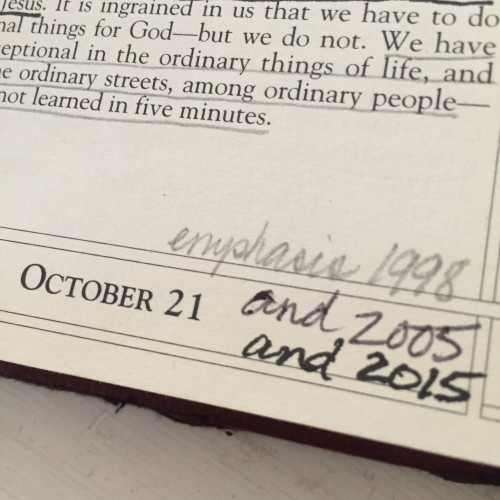 Jesus. It is ingrained in us that we have to do
nal things for God—but we do not. We have
ceptional in the ordinary things of life, and
e ordinary streets, among ordinary people—
not learned in five minutes.
emphasis 1998
OCTOBER 21
and 2005
and 2015